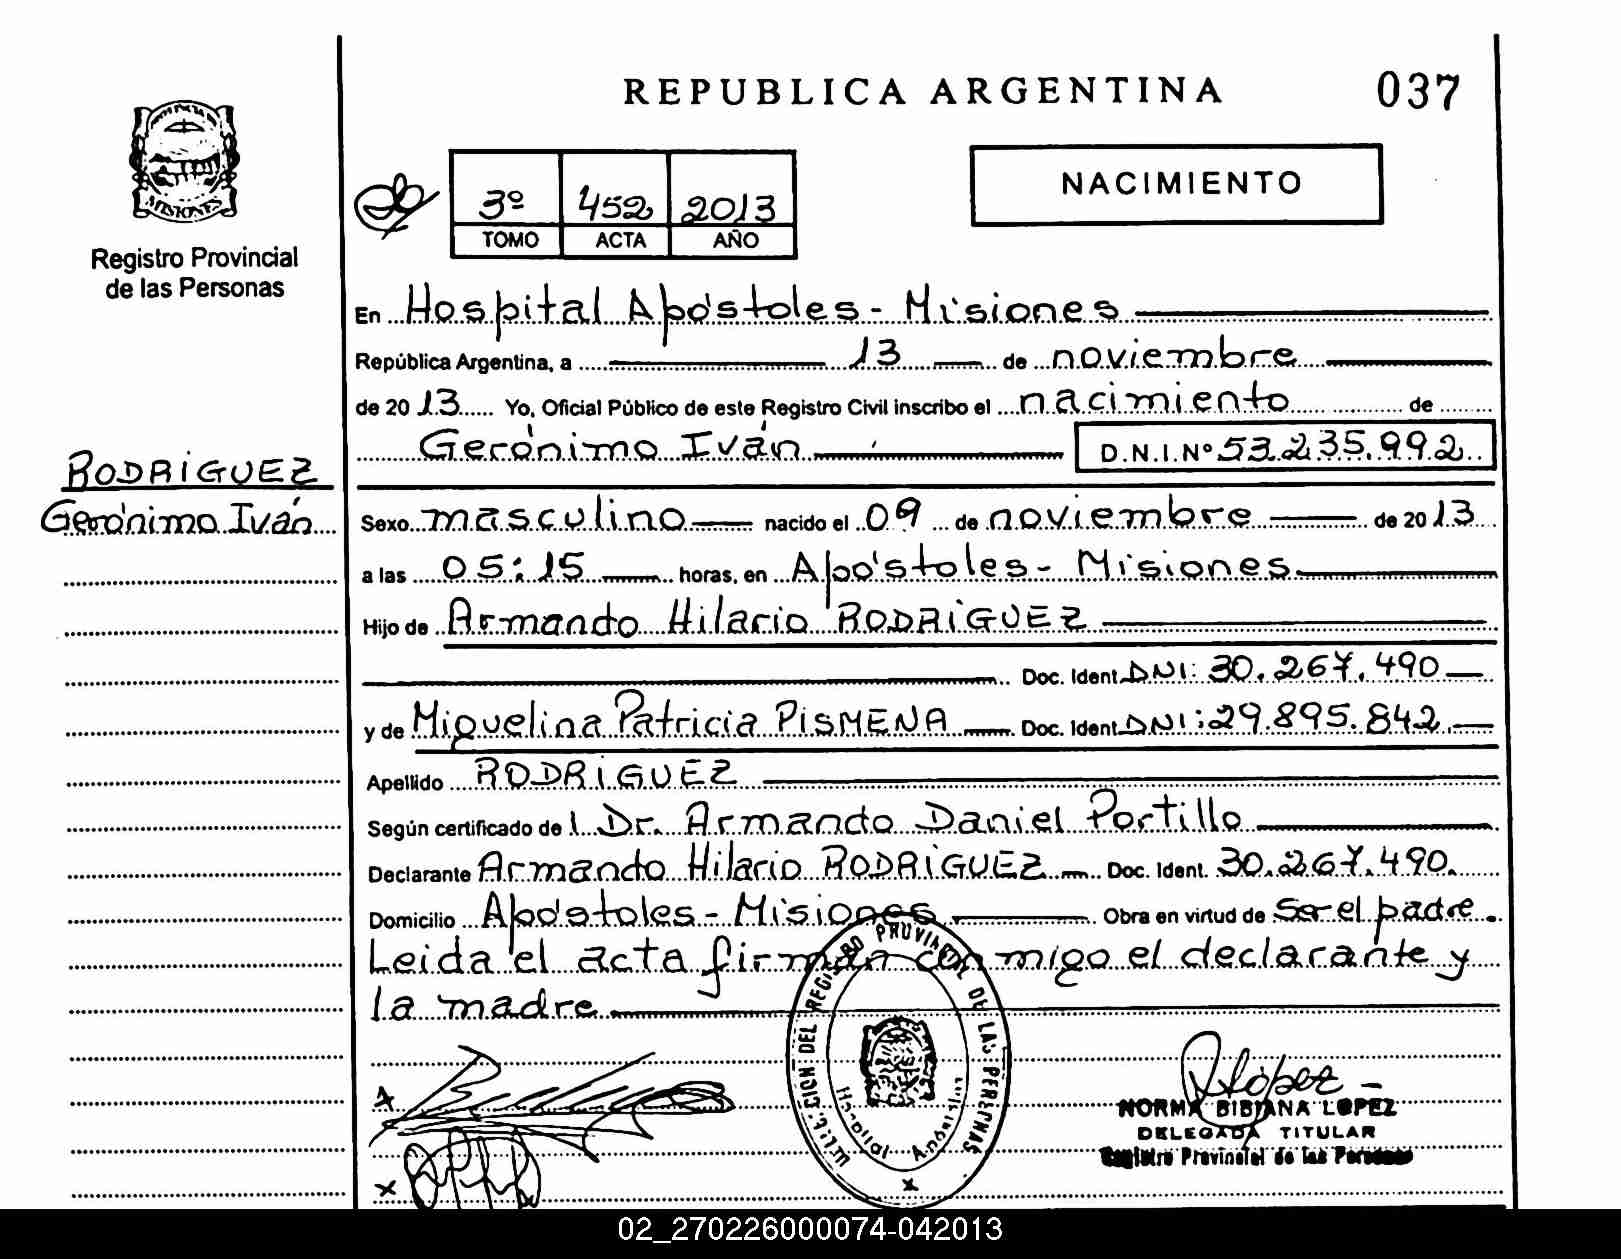 REPUBLICA ARGENTINA
037
MISIONES
Registro Provincial
de las Personas
3º 452 2013
TOMO ACTA AÑO
NACIMIENTO
En Hospital Apóstoles - Misiones
República Argentina, a 13 de noviembre
de 2013 Yo, Oficial Público de este Registro Civil inscribo el nacimiento de
Gerónimo Iván D.N.I.Nº 53.235.992
RODRiGUEZ
Gerónimo Iván
Sexo masculino nacido el 09 de noviembre de 2013
a las 05:15 horas, en Apóstoles - Misiones
Hijo de Armando Hilario RODRiGUEZ
Doc. Ident DNI: 30.267.490
y de Miguelina Patricia PiSMENA Doc. Ident DNI: 29.895.842
Apellido RODRiGUEZ
Según certificado del Dr. Armando Daniel Portillo
Declarante Armando Hilario RODRiGUEZ Doc. Ident. 30.267.490.
Domicilio Apóstoles - Misiones Obra en virtud de Ser el padre.
Leida el acta firman conmigo el declarante y
la madre
DEL REGISTRO PROVINCIAL DE LAS PERSONAS
Hospital Apóstoles
RLópez
NORMA BIBIANA LOPEZ
DELEGADA TITULAR
Registro Provincial de las Personas
02_270226000074-042013